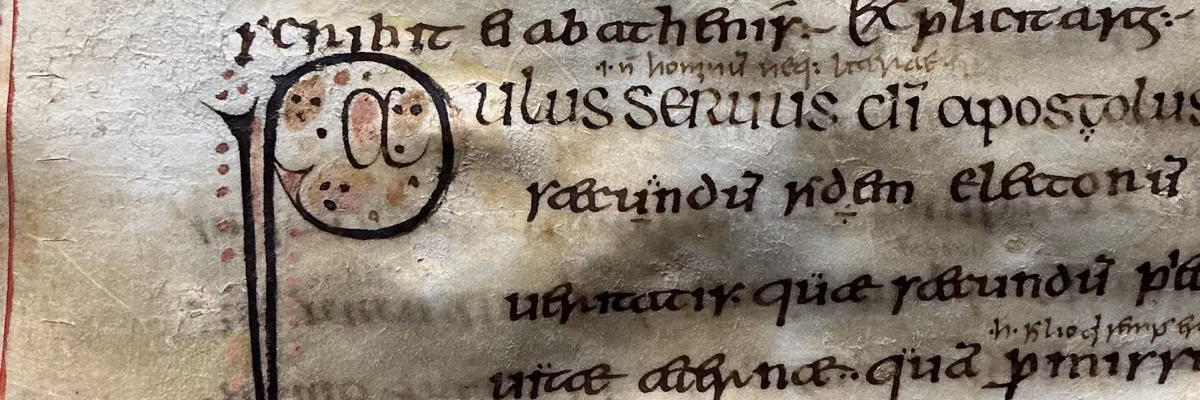 scribit ei ab athenis:~ Explicit arg:~
.i. n̄ hominū neq:
PAULUS SERUUS dī apostolus
secundū fidem electorū
ueritatis. quae secundū
uitae aeternae:. quā